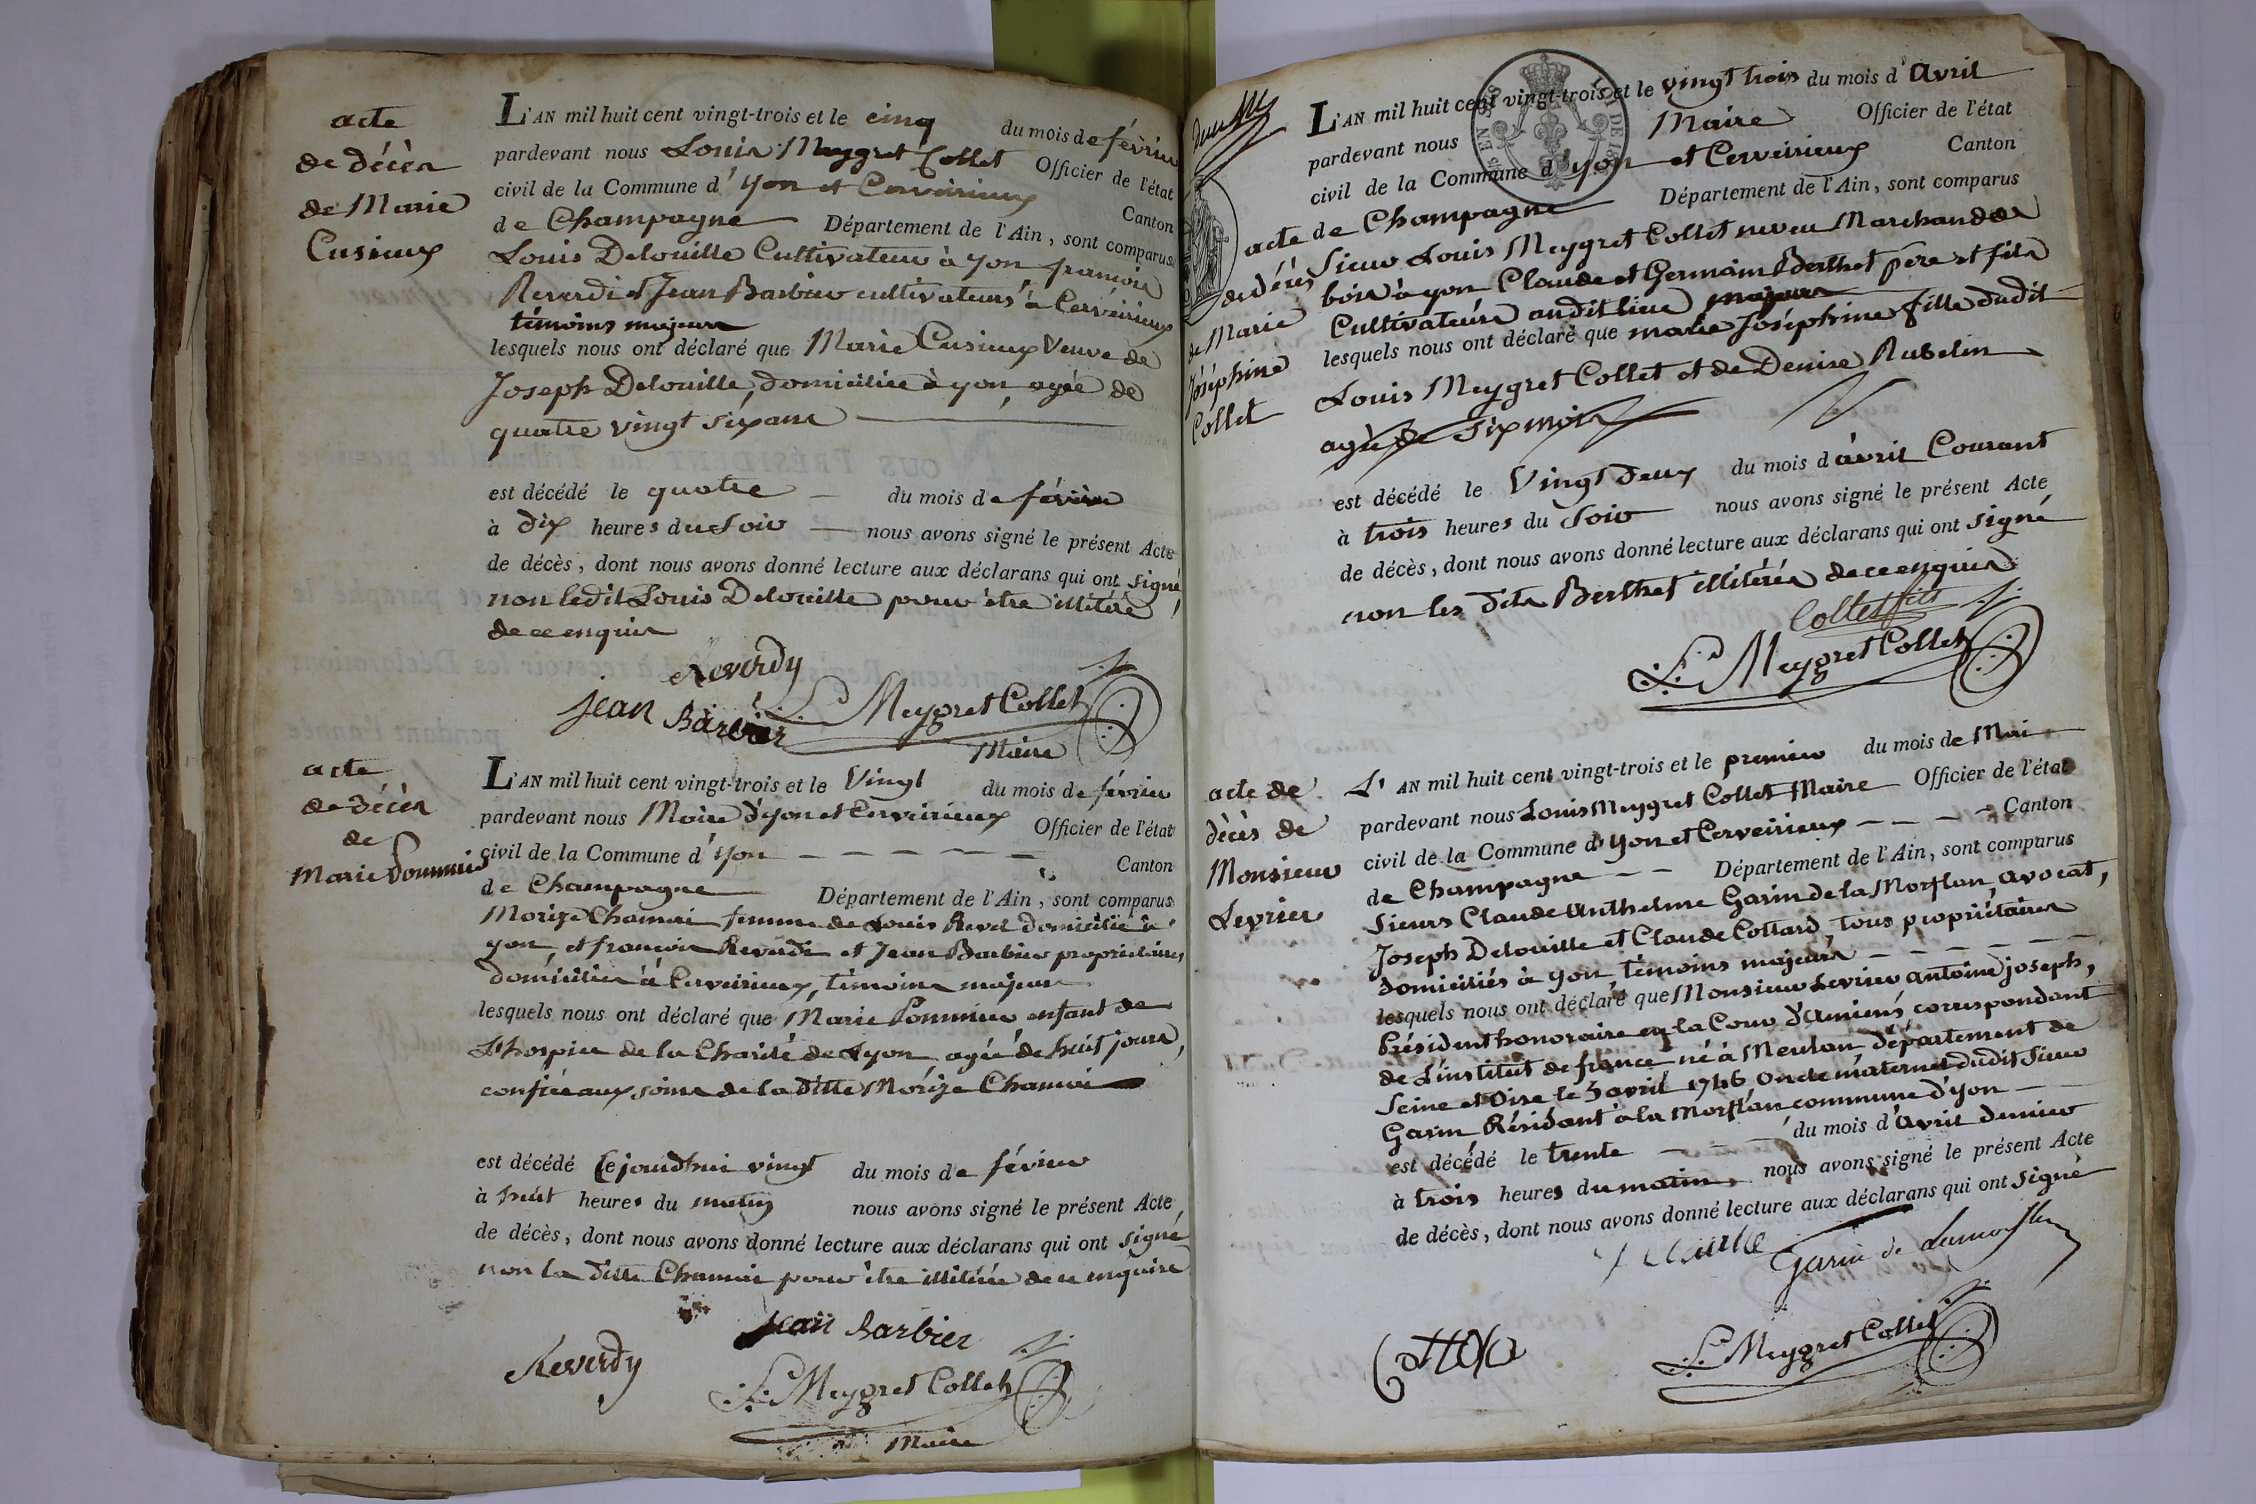 acte
de décès
de Marie
Cusieux
L'AN mil huit cent vingt-trois et le cinq du mois de février
pardevant nous Louis Meygret Collet Officier de l'état
civil de la Commune d'yon et Cerveirieux Canton
de Champagne Département de l'Ain, sont comparus
Louis Delouille Cultivateur à yon, françois
Reverdi et Jean Barbier cultivateurs à Cerveirieux
témoins majeurs
lesquels nous ont déclaré que Marie Cusieux Veuve de
Joseph Delouille, domiciliée à yon, agée de
quatre vingt six ans
est décédé le quatre du mois de février
à dix heures du soir nous avons signé le présent Acte
de décès, dont nous avons donné lecture aux déclarans qui ont signé,
non ledit Louis Delouille pour être illitéré
de ce enquis
Reverdy
jean Barbier L. Meygret Collet
Maire
acte
de décès
de
Marie Pommier
L'AN mil huit cent vingt-trois et le Vingt du mois de février
pardevant nous Maire d'yon et Cerveirieux Officier de l'état
civil de la Commune d'yon Canton
de Champagne Département de l'Ain, sont comparus
Morize Chamoi femme de Louis Revel domiciliée à
yon, et françois Reverdi et Jean Barbier propriétaires
domiciliés à Cerveirieux, témoins majeurs
lesquels nous ont déclaré que Marie Pommier enfant de
L'hospice de la Charité de Lyon agée de huit jours,
confiée aux soins de la ditte Morize Chamoi
est décédé cejourdhui vingt du mois de février
à huit heures du matin nous avons signé le présent Acte
de décès, dont nous avons donné lecture aux déclarans qui ont signé
non la ditte Chamoi pour être illitérée de ce enquise
jean Barbier
Reverdy
L. Meygret Collet
Maire
acte
de décès
de Marie
Joséphine
Collet
L'AN mil huit cent vingt-trois et le vingt trois du mois d'Avril
pardevant nous Maire Officier de l'état
civil de la Commune d'yon et Cerveirieux Canton
de Champagne Département de l'Ain, sont comparus
Sieur Louis Meygret Collet neveu Marchand de
bois à yon Claude et Germain Berthet père et fils
Cultivateurs audit lieu majeurs
lesquels nous ont déclaré que marie Joséphine fille dudit
Louis Meygret Collet et de Denise Rubelin
agée de six mois
est décédé le Vingt deux du mois d'avril Courant
à trois heures du soir nous avons signé le présent Acte
de décès, dont nous avons donné lecture aux déclarans qui ont signé
non les dits Berthet illitérés de ce enquis
Collet fils
L. Meygret Collet
acte de
décès de
Monsieur
Levrier
L'AN mil huit cent vingt-trois et le premier du mois de Mai
pardevant nous Louis Meygret Collet Maire Officier de l'état
civil de la Commune d'yon et Cerveirieux Canton
de Champagne Département de l'Ain, sont comparus
Sieurs Claude Anthelme Garin de la Morflan, avocat,
Joseph Delouille et Claude Cottard, tous propriétaires
domiciliés à yon, témoins majeurs
lesquels nous ont déclaré que Monsieur Levrier antoine joseph,
Président honoraire en la Cour d'Amiens correspondant
de L'institut de france né à Meulan département de
Seine et Oise le 5 avril 1746 oncle maternel dudit Sieur
Garin Résidant à la Morflan commune d'yon
est décédé le trente du mois d'avril dernier
à trois heures du matin nous avons signé le présent Acte
de décès, dont nous avons donné lecture aux déclarans qui ont signé
Garin de Lamorflan
L. Meygret Collet